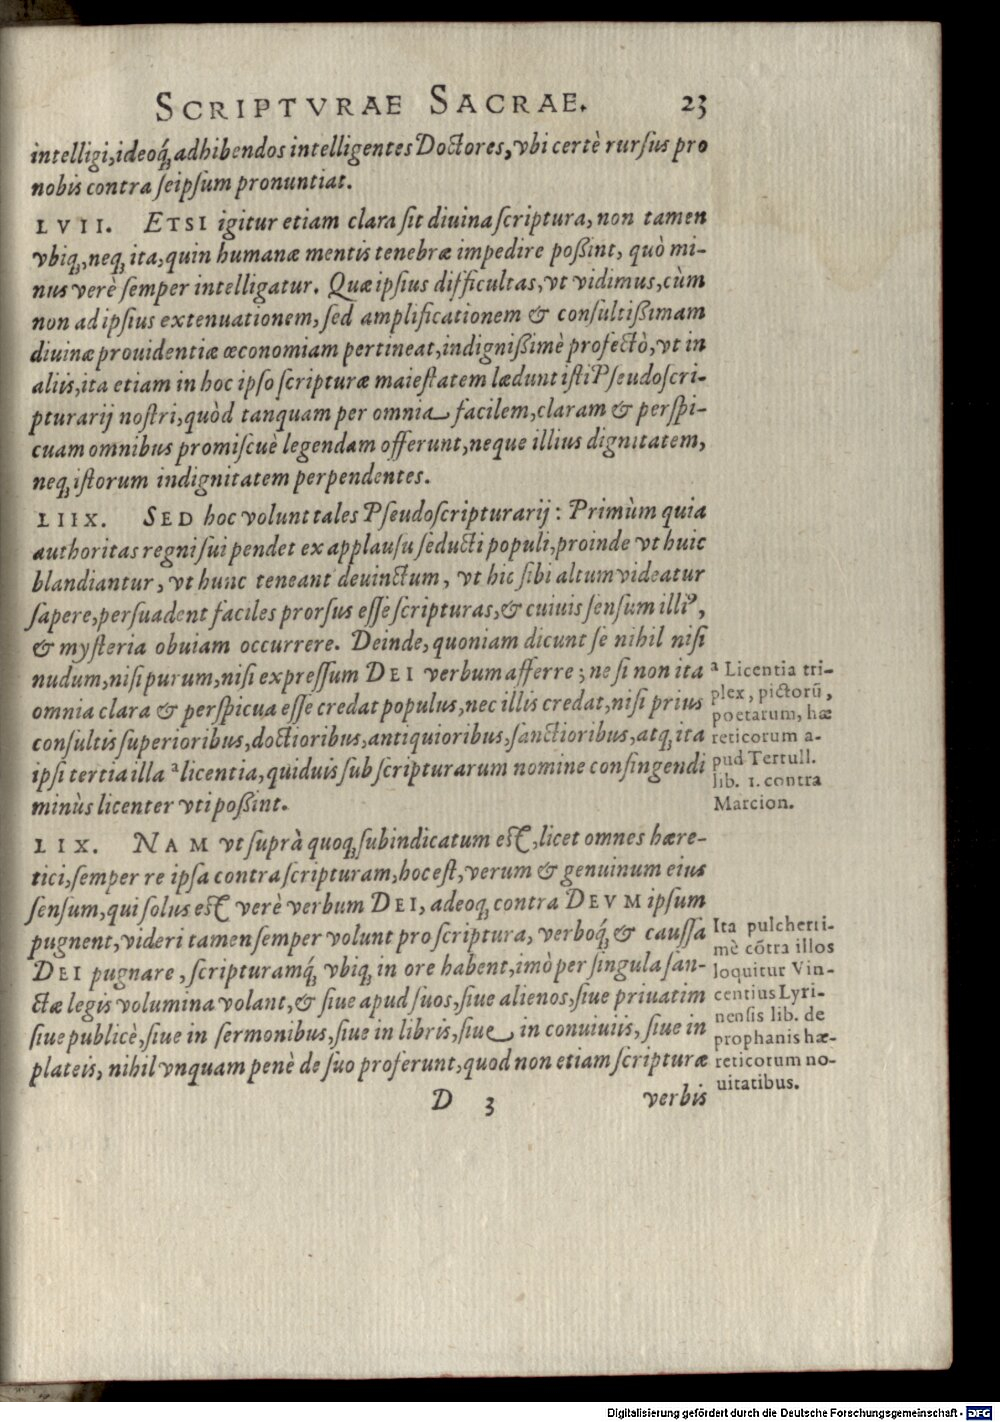 SCRIPTVRAE SACRAE. 23
intelligi, ideoq́ꝫ adhibendos intelligentes Doctores, vbi certè rurſus pro
nobis contra ſeipſum pronuntiat.
LVII. ETSI igitur etiam clara ſit diuina ſcriptura, non tamen
vbiqꝫ, neqꝫ ita, quin humanæ mentis tenebræ impedire poßint, quò mi-
nus verè ſemper intelligatur. Quæ ipſius difficultas, vt vidimus, cùm
non ad ipſius extenuationem, ſed amplificationem & conſultißimam
diuinæ prouidentiæ œconomiam pertineat, indignißimè profectò, vt in
aliis, ita etiam in hoc ipſo ſcripturæ maieſtatem lædunt iſti Pſeudoſcri-
pturarij noſtri, quòd tanquam per omnia facilem, claram & perſpi-
cuam omnibus promiſcuè legendam offerunt, neque illius dignitatem,
neqꝫ iſtorum indignitatem perpendentes.
LIIX. SED hoc volunt tales Pſeudoſcripturarij: Primùm quia
authoritas regni ſui pendet ex applauſu ſeducti populi, proinde vt huic
blandiantur, vt hunc teneant deuinctum, vt hic ſibi altum videatur
ſapere, perſuadent faciles prorſus eſſe ſcripturas, & cuiuis ſenſum illiꝰ,
& myſteria obuiam occurrere. Deinde, quoniam dicunt ſe nihil niſi
nudum, niſi purum, niſi expreſſum DEI verbum afferre; ne ſi non ita
omnia clara & perſpicua eſſe credat populus, nec illis credat, niſi prius
conſultis ſuperioribus, doctioribus, antiquioribus, ſanctioribus, atqꝫ ita
ipſi tertia illa ᵃ licentia, quiduis ſub ſcripturarum nomine confingendi
minùs licenter vti poßint.
ᵃ Licentia tri-
plex, pictorũ,
poetarum, hæ
reticorum a-
pud Tertull.
lib. 1. contra
Marcion.
LIX. NAM vt ſuprà quoqꝫ ſubindicatum eſt, licet omnes hære-
tici, ſemper re ipſa contra ſcripturam, hoc eſt, verum & genuinum eius
ſenſum, qui ſolus eſt verè verbum DEI, adeoqꝫ contra DEVM ipſum
pugnent, videri tamen ſemper volunt pro ſcriptura, verboq́ꝫ & cauſſa
DEI pugnare, ſcripturamq́ꝫ vbiqꝫ in ore habent, imò per ſingula ſan-
ctæ legis volumina volant, & ſiue apud ſuos, ſiue alienos, ſiue priuatim
ſiue publicè, ſiue in ſermonibus, ſiue in libris, ſiue in conuiuiis, ſiue in
plateis, nihil vnquam penè de ſuo proferunt, quod non etiam ſcripturæ
Ita pulcherri-
mè cõtra illos
loquitur Vin-
centius Lyri-
nenſis lib. de
prophanis hæ-
reticorum no-
uitatibus.
D 3 verbis
Digitalisierung gefördert durch die Deutsche Forschungsgemeinschaft - DFG